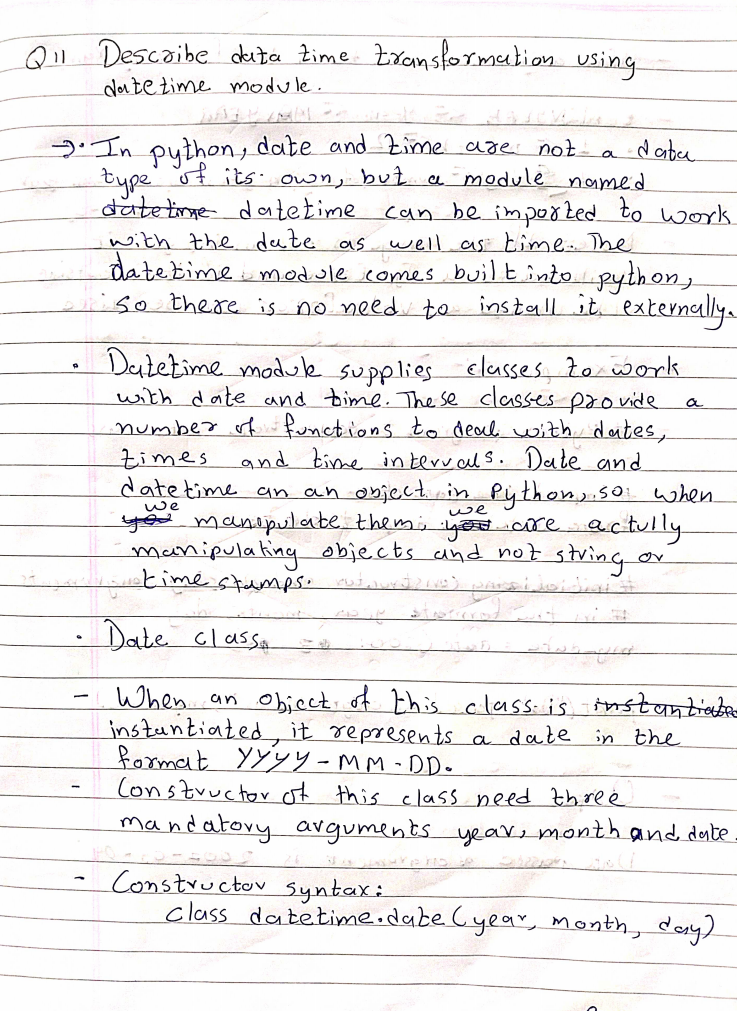 Q11 Describe data time transformation using
datetime module.
→• In python, date and time are not a data
type of its own, but a module named
datetime datetime can be imported to work
with the date as well as time. The
datetime module comes built into python,
so there is no need to install it externally.
• Datetime module supplies classes to work
with date and time. These classes provide a
number of functions to deal with dates,
times and time intervals. Date and
datetime an an object in Python, so when
we
we
you manipulate them, you are actully
manipulating objects and not string or
time stamps.
• Date class
- When an object of this class is instantiate
instantiated, it represents a date in the
format YYYY-MM-DD.
- Constructor of this class need three
mandatory arguments year, month and date.
- Constructor syntax:
Class datetime.date (year, month, day)